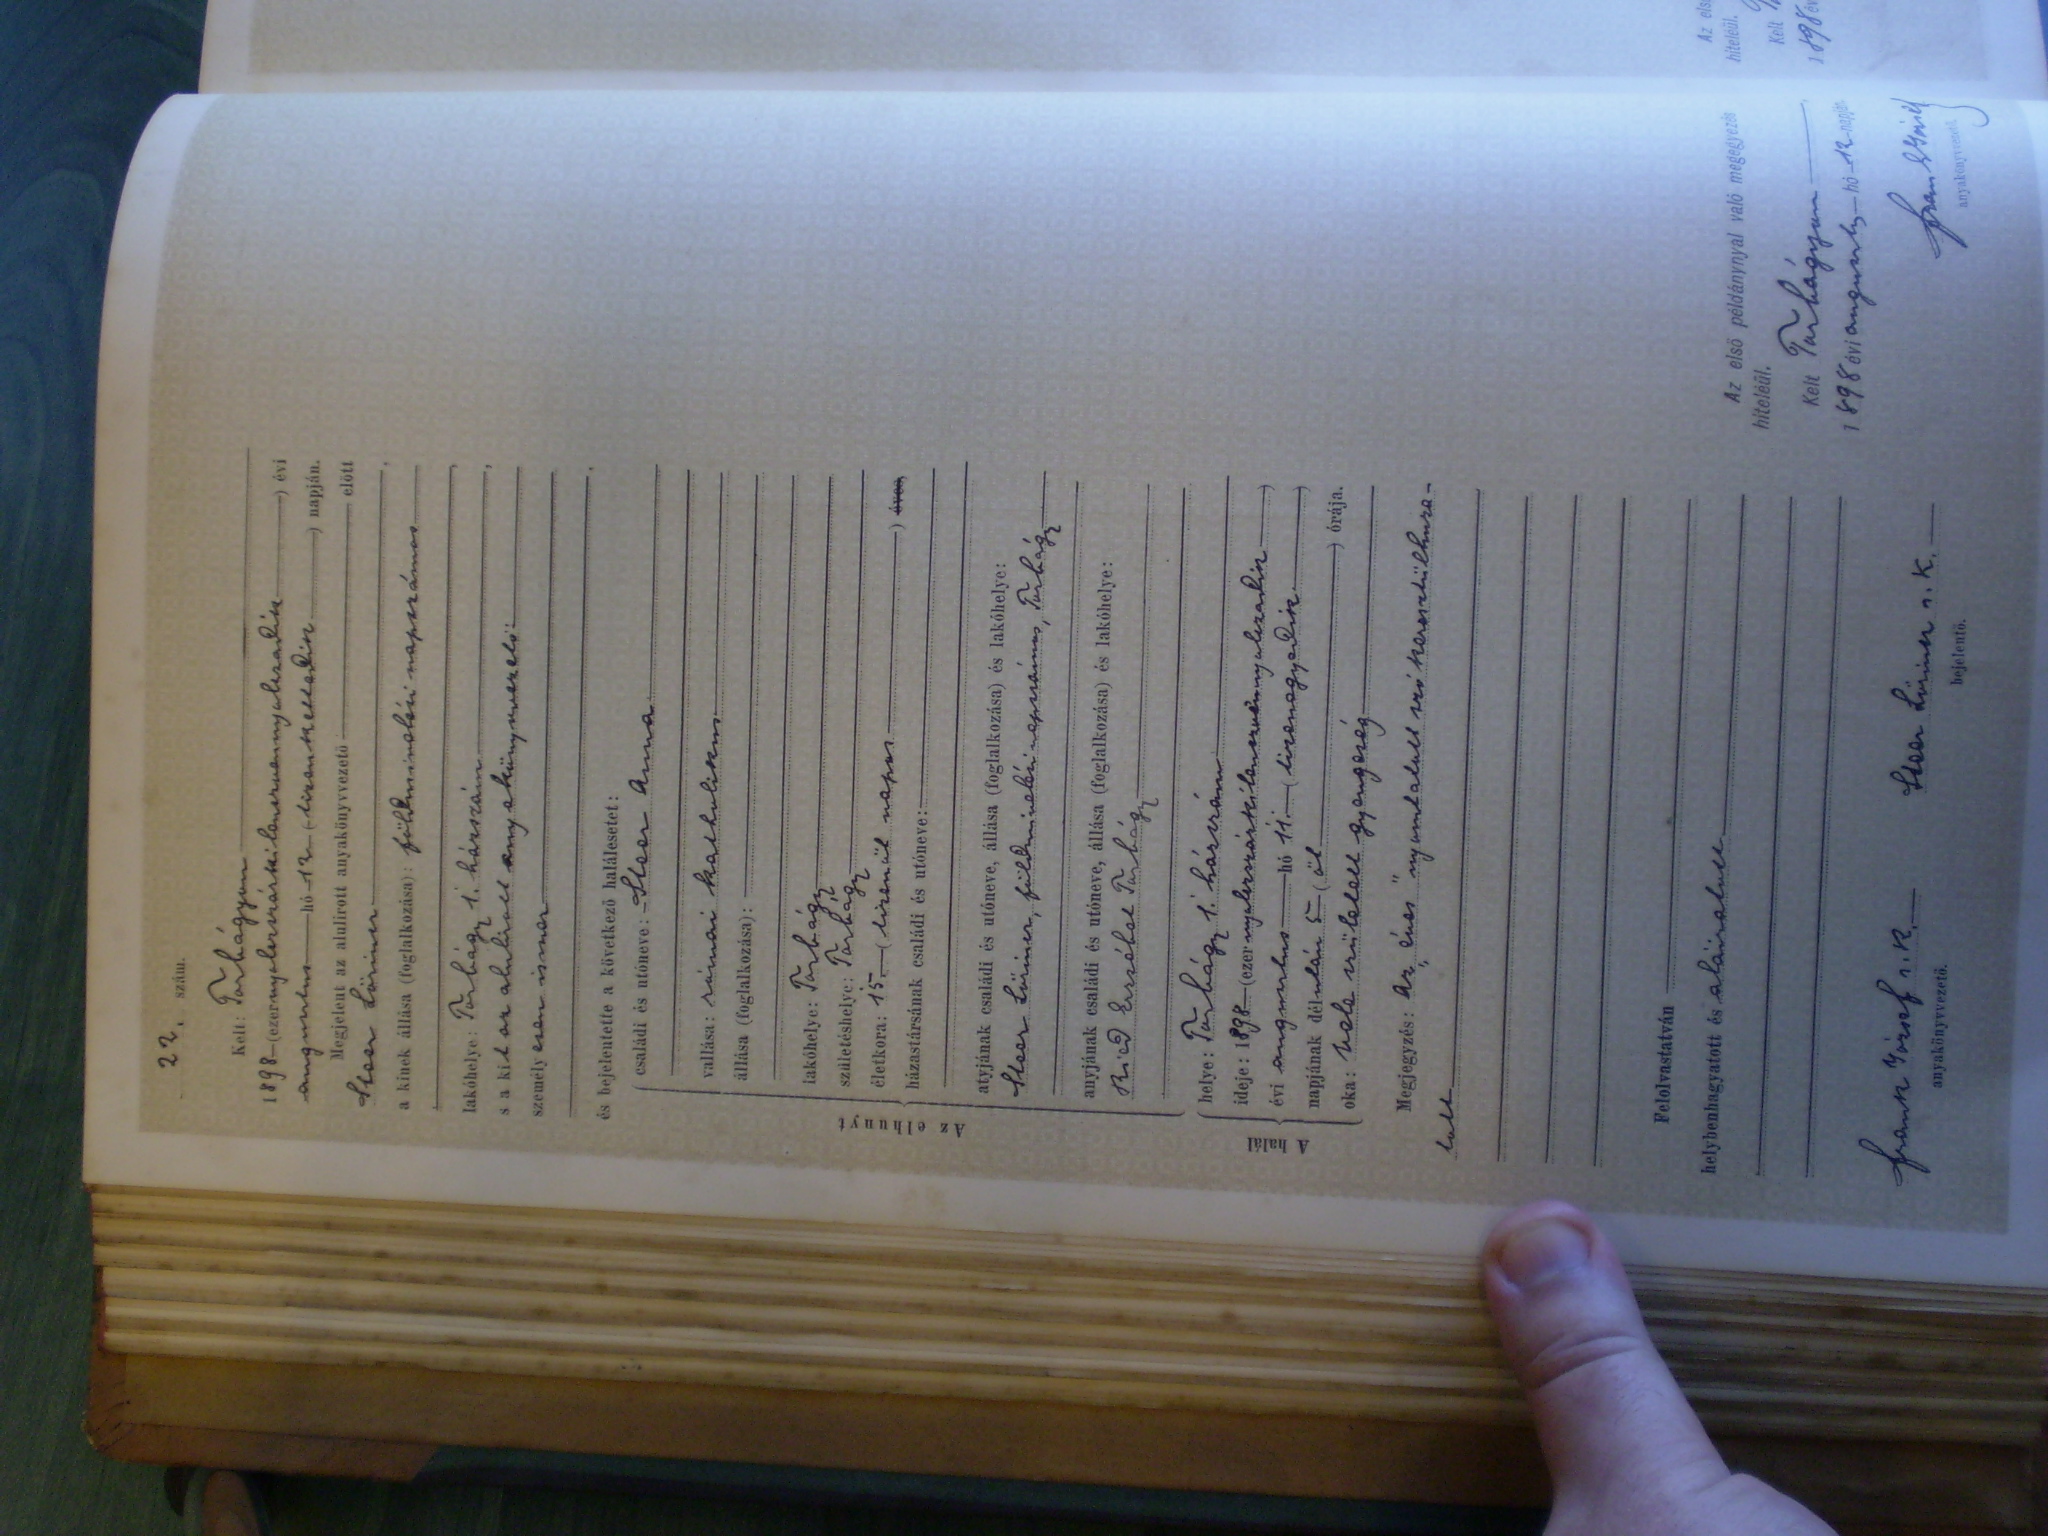 22. szám.
Kelt: Tarhágyon
1898 (ezernyolcszázkilencvennyolczadik) évi
augusztus hó 12 (tizenkettedik) napján.
Megjelent az alulírott anyakönyvezető előtt
Lőrincz
a kinek állása (foglalkozása): földmivelési napszámos
lakóhelye: Tarhágy 1. házszám
s a kit az alulírott anyakönyvvezető
személyesen ismer
és bejelentette a következő halálesetet:
Az elhunyt
családi és utóneve: Anna
vallása: római katholikus
állása (foglalkozása):
lakóhelye: Tarhágy
születéshelye: Tarhágy
életkora: 15 (tizenöt napos) éves,
házastársának családi és utóneve:
atyjának családi és utóneve, állása (foglalkozása) és lakóhelye:
Lőrincz, földmivelési napszámos, Tarhágy
anyjának családi és utóneve, állása (foglalkozása) és lakóhelye:
Ried Erzsébet Tarhágy
A halál
helye: Tarhágy 1. házszám
ideje: 1898 (ezernyolcszázkilencvennyolczadik)
évi augusztus hó 11 (tizenegyedik)
napjának délután 5 (öt) órája.
oka: vele született gyengeség
Megjegyzés: Az "éves" nyomtatott szó keresztülhuza-
tott
Felolvastatván
helybenhagyatott és aláíratott
Frank József s. k.
anyakönyvvezető.
Lőrincz s. k.
bejelentő.
Az első példánynyal való megegyezés
hiteléül.
Kelt Tarhágyon
1898 évi augusztus hó 12 napján
Frank József
anyakönyvvezető.
Az első
hiteléül.
Kelt
1898 év